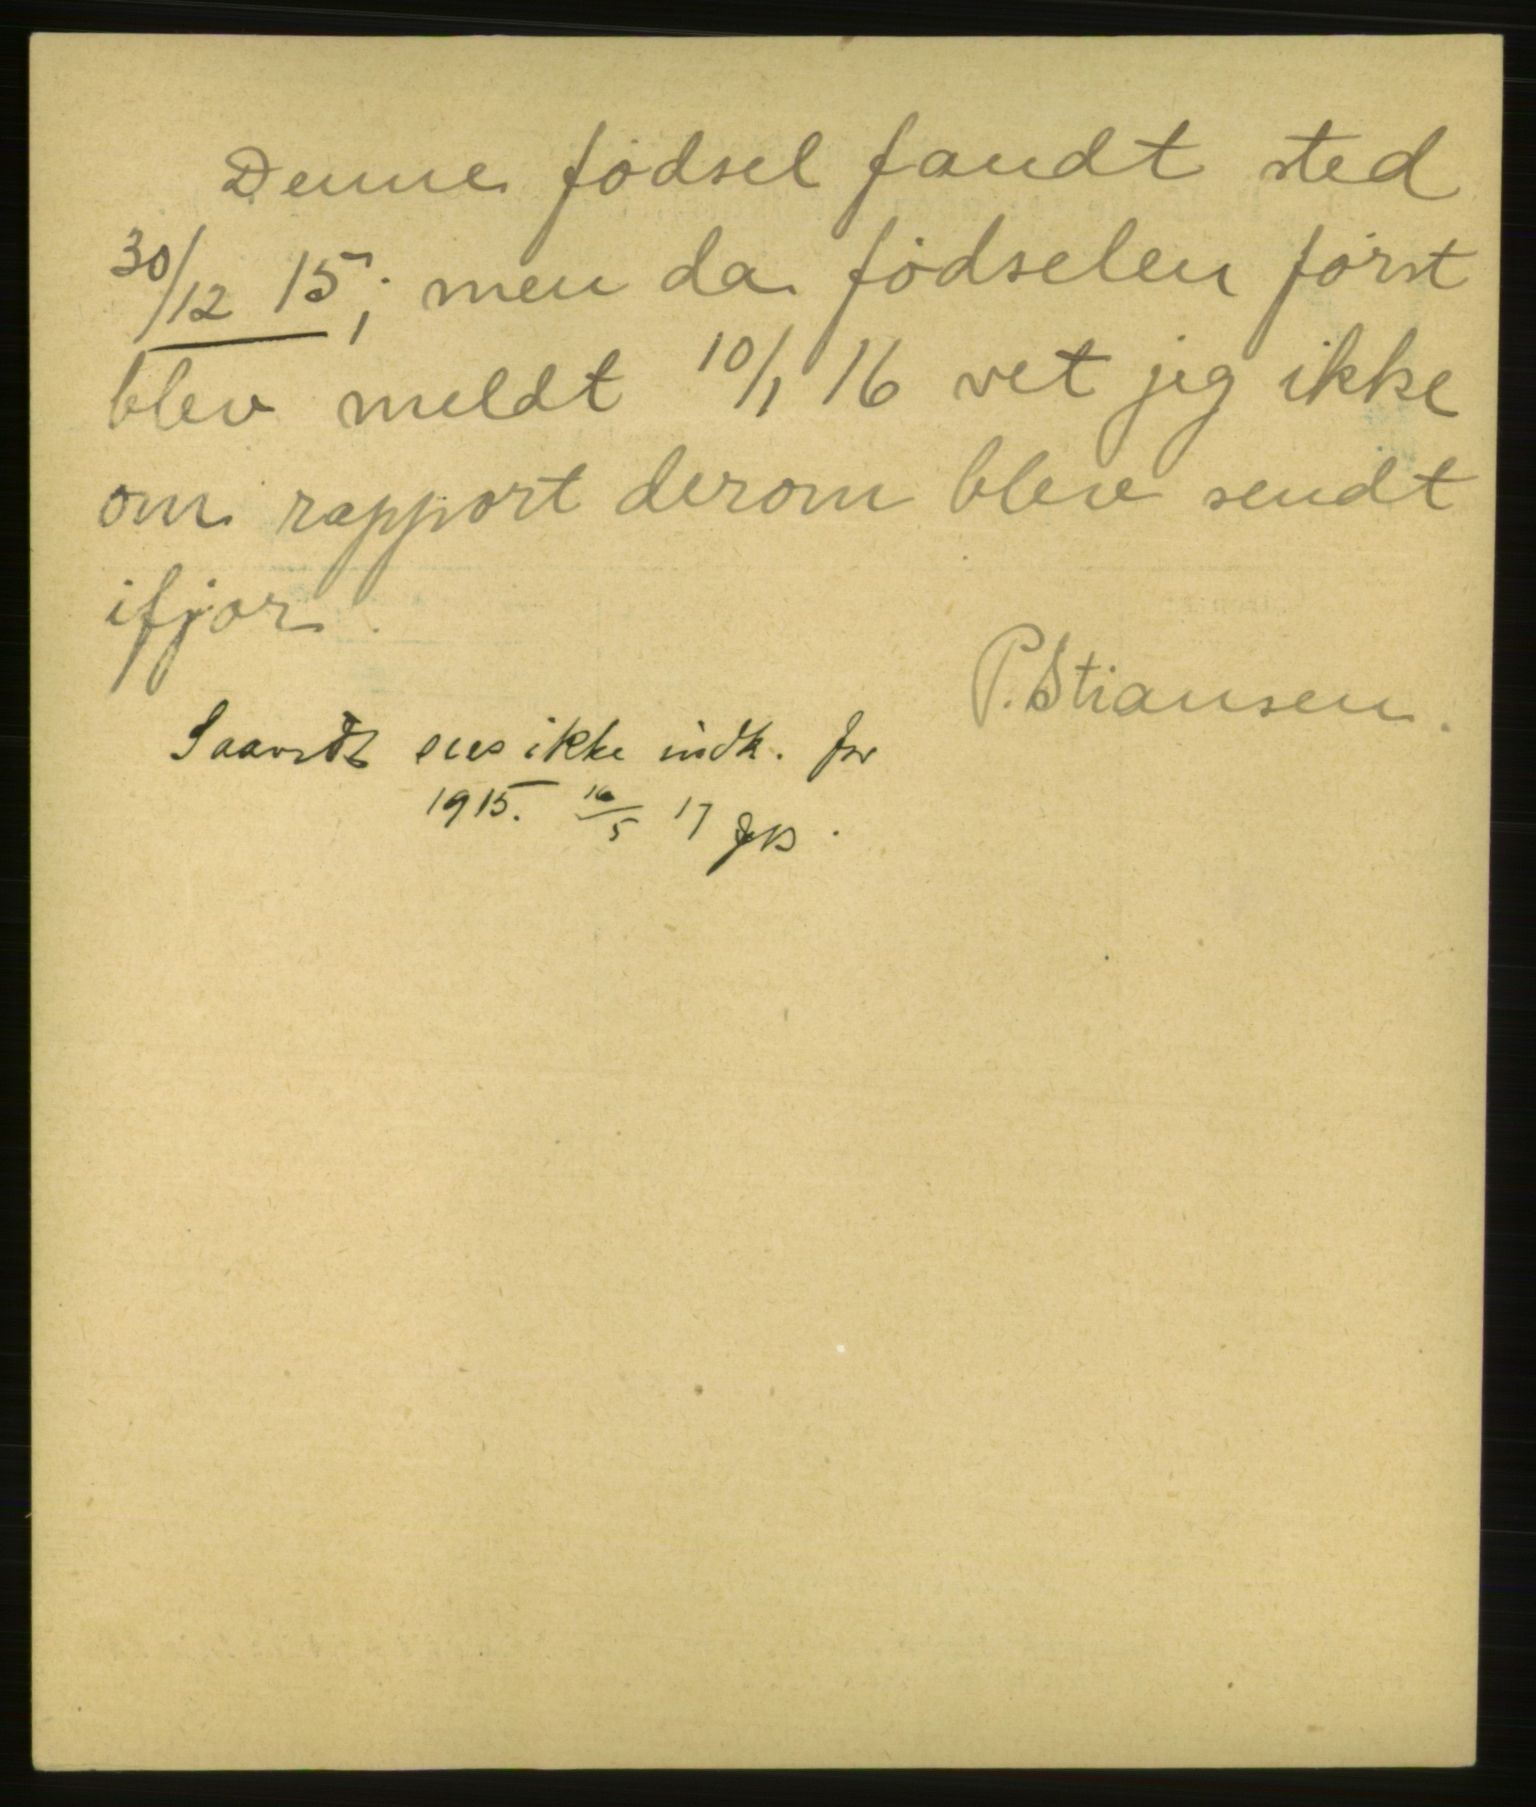 Denne fødsel fandt sted
30/12 15; men da fødselen først
blev meldt 10/1 16 vet jeg ikke
om rapport derom blev sendt
ifjor.
P. Stiansen.
Saavidt sees ikke indk. for
1915. 16/5 17